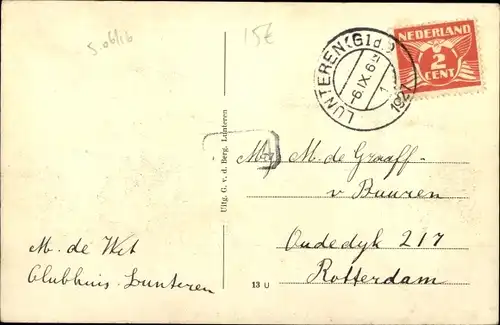 5.06/16
15£
LUNTEREN (Gld.)
6.IX.6
1
192
NEDERLAND
2
CENT
Uitg. G. v. d. Berg, Lunteren
M. de Graaff-
v Buuren
Oudedyk 217
Rotterdam
M. de Wet
Clubhuis. Lunteren
13 U